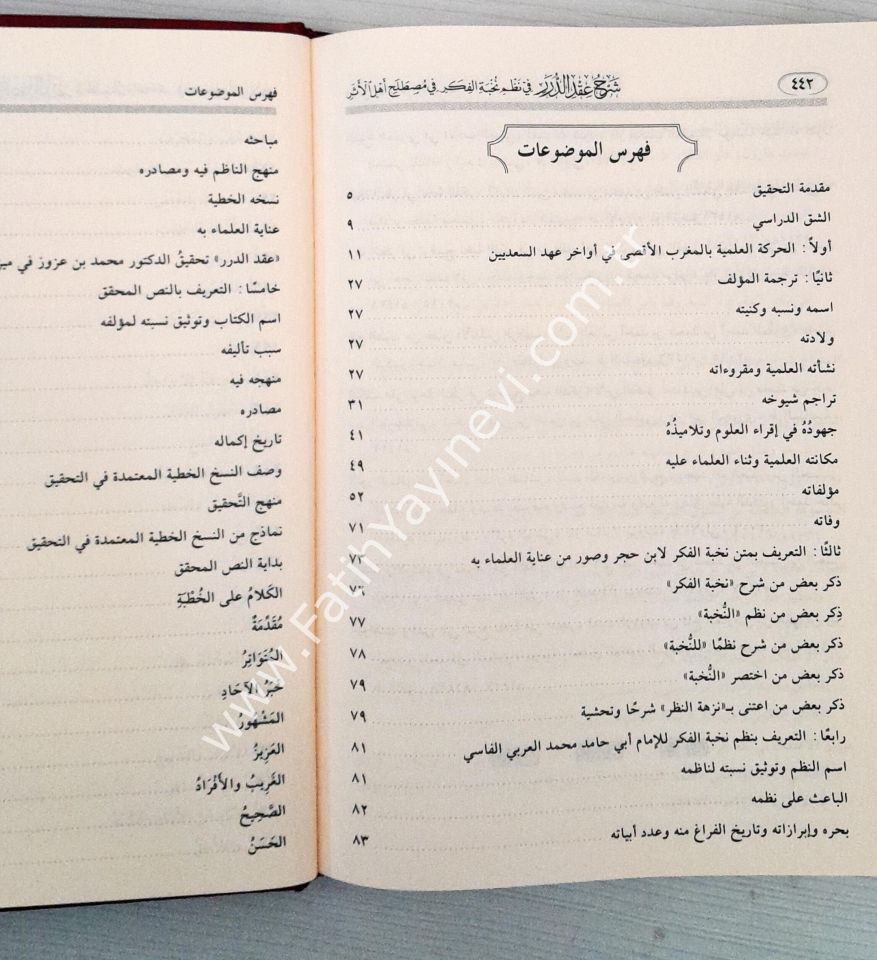 ٤٤٢
شرح عقد الدرر في نظم نخبة الفكر في مصطلح أهل الأثر
فهرس الموضوعات
مقدمة التحقيق ٥
الشق الدراسي ٩
أولاً: الحركة العلمية بالمغرب الأقصى في أواخر عهد السعديين ١١
ثانيًا: ترجمة المؤلف ٢٧
اسمه ونسبه وكنيته ٢٧
ولادته ٢٧
نشأته العلمية ومقروءاته ٢٧
تراجم شيوخه ٣١
جهودُهُ في إقراء العلوم وتلاميذُهُ ٤١
مكانته العلمية وثناء العلماء عليه ٤٩
مؤلفاته ٥٢
وفاته ٧١
ثالثًا: التعريف بمتن نخبة الفكر لابن حجر وصور من عناية العلماء به
ذكر بعض من شرح «نخبة الفكر»
ذِكر بعض من نظم «النُّخبة» ٧٧
ذكر بعض من شرح نظمًا «للنُّخبة» ٧٨
ذكر بعض من اختصر «النُّخبة» ٧٩
ذكر بعض من اعتنى بـ«نزهة النظر» شرحًا وتحشية ٧٩
رابعًا: التعريف بنظم نخبة الفكر للإمام أبي حامد محمد العربي الفاسي ٨١
اسم النظم وتوثيق نسبته لناظمه ٨١
الباعث على نظمه ٨٢
بحره وإبرازاته وتاريخ الفراغ منه وعدد أبياته ٨٣
فهرس الموضوعات
مباحثه
منهج الناظم فيه ومصادره
نسخه الخطية
عناية العلماء به
«عقد الدرر» تحقيقُ الدكتور محمد بن عزوز في
خامسًا: التعريف بالنص المحقق
اسم الكتاب وتوثيق نسبته لمؤلفه
سبب تأليفه
منهجه فيه
مصادره
تاريخ إكماله
وصف النسخ الخطية المعتمدة في التحقيق
منهج التَّحقيق
نماذج من النسخ الخطية المعتمدة في التحقيق
بداية النص المحقق
الكَلامُ على الخُطْبَةِ
مُقَدِّمَةٌ
المُتَوَاتِرُ
خَبَرُ الآحَادِ
المَشْهُورُ
العَزِيزُ
الغَرِيبُ والأَفْرَادُ
الصَّحِيحُ
الحَسَنُ
www.FatihYayinevi.com.tr